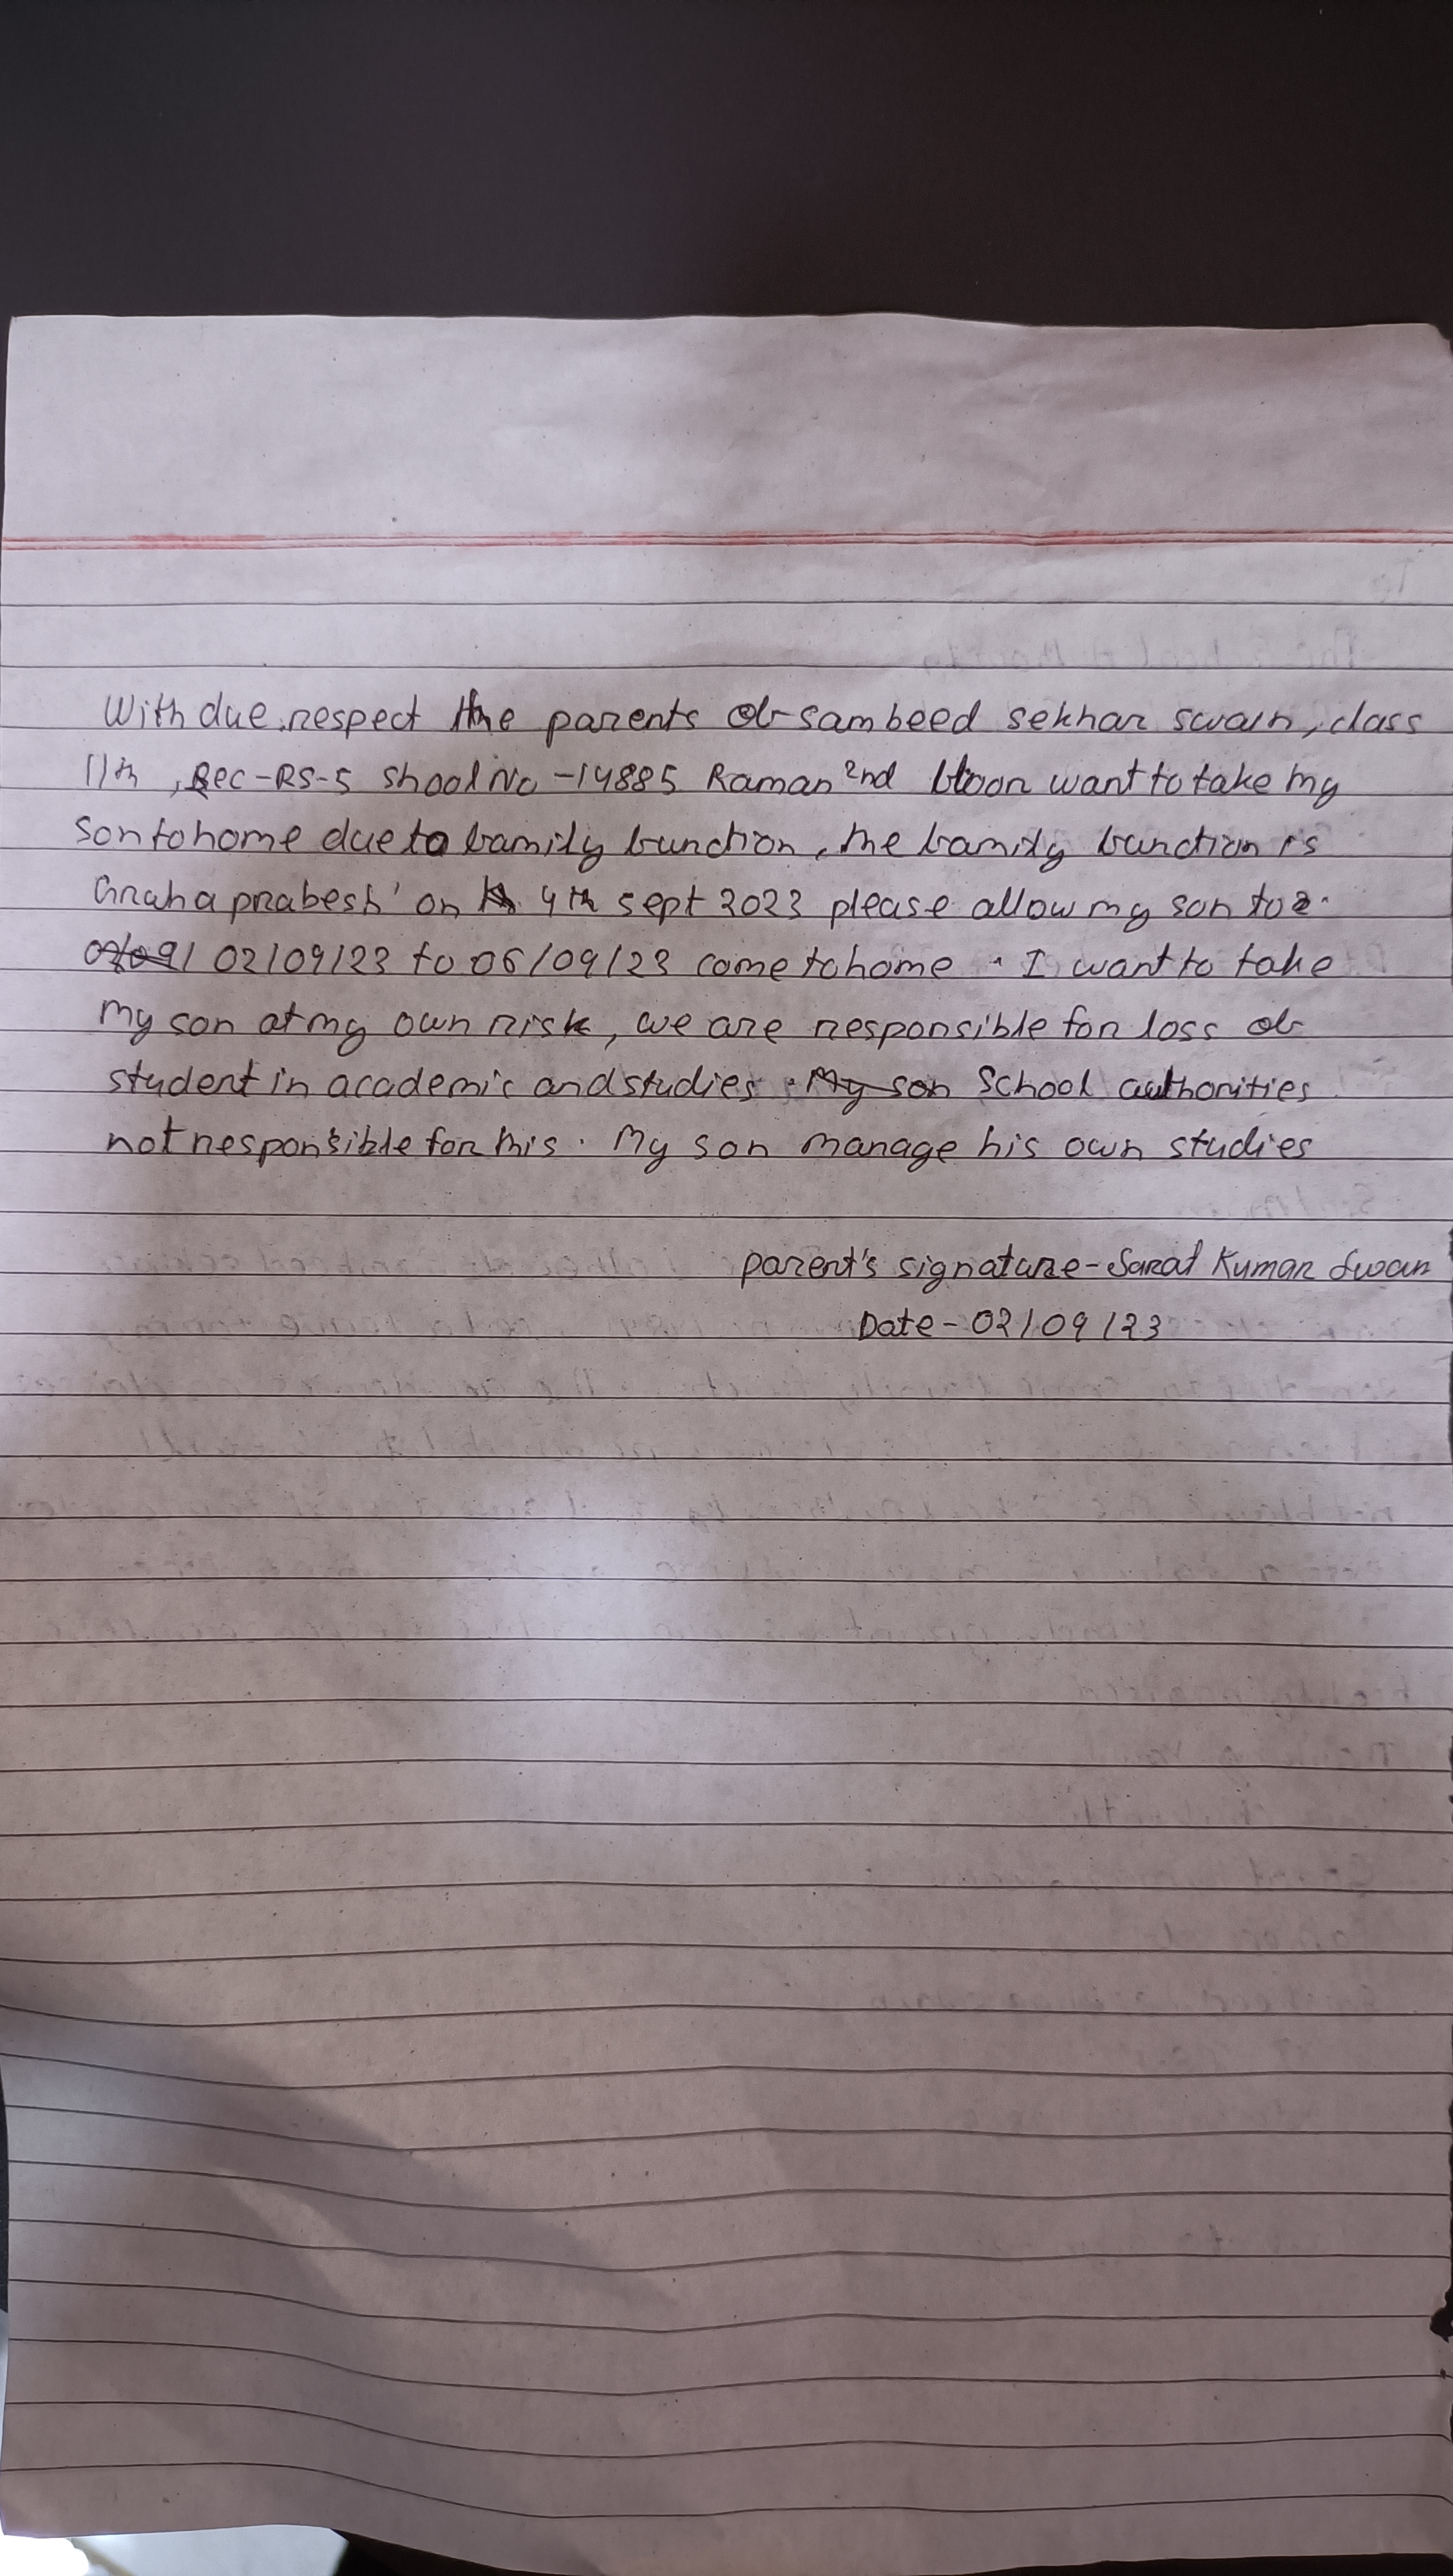 With due respect the parents of sambeed sekhar swain, class
11th, Sec-RS-5 shool No -14885 Raman 2nd floor want to take my
son to home due to family function, the family function is
Gruha prabesh' on 4th sept 2023 please allow my son to
02/09/23 to 06/09/23 come to home. I want to take
my son at my own risk, we are responsible for loss of
student in academic and studies. My son School authorities
not responsible for this. My son manage his own studies
parent's signature-Sarat Kumar Swain
Date-02/09/23